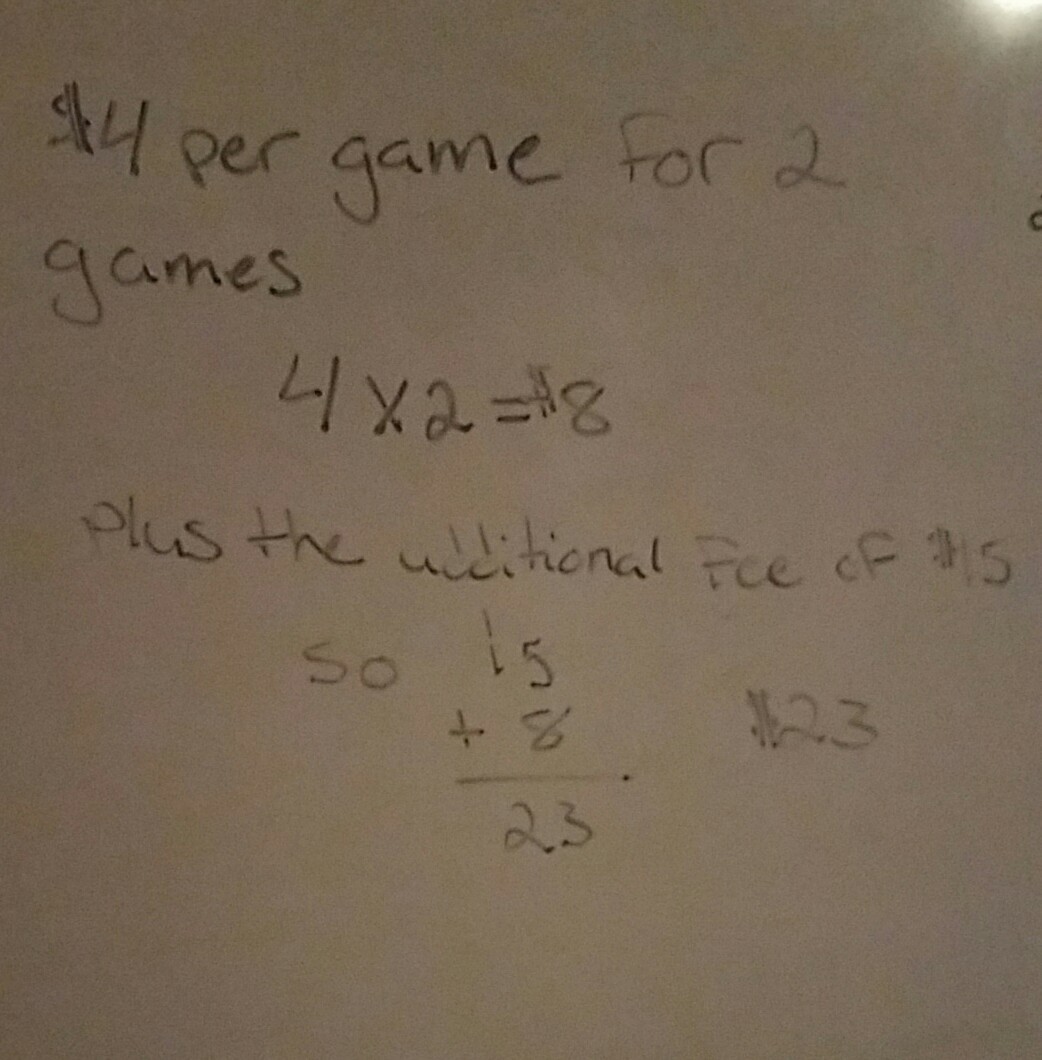 $4 per game for 2
games
4 x 2 = $8
Plus the additional Fee of $15
so 15
+ 8
23
$23